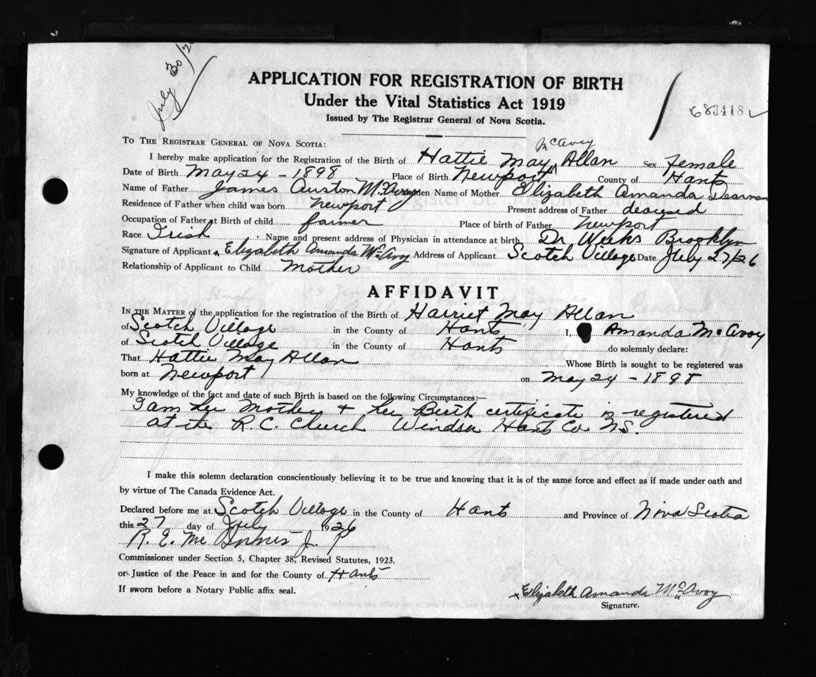 July 30/26
APPLICATION FOR REGISTRATION OF BIRTH
Under the Vital Statistics Act 1919
Issued by The Registrar General of Nova Scotia.
683418
TO THE REGISTRAR GENERAL OF NOVA SCOTIA:
McAvoy
I hereby make application for the Registration of the Birth of Hattie May Allan Sex female
Date of Birth May 24 - 1898 Place of Birth Newport County of Hants
Name of Father James Auston McAvoy Maiden Name of Mother Elizabeth Amanda
Residence of Father when child was born Newport Present address of Father
Occupation of Father at Birth of child farmer Place of birth of Father Newport
Race Irish Name and present address of Physician in attendance at birth Dr Weeks Brooklyn
Signature of Applicant Elizabeth Amanda McAvoy Address of Applicant Scotch Village Date July 27/26
Relationship of Applicant to Child Mother
AFFIDAVIT
IN THE MATTER of the application for the registration of the Birth of Harriet May Allan
of Scotch Village in the County of Hants I, Amanda McAvoy
of Scotch Village in the County of Hants do solemnly declare:
That Hattie May Allan Whose Birth is sought to be registered was
born at Newport on May 24 - 1898
My knowledge of the fact and date of such Birth is based on the following Circumstances:—
I am her Mother + her Birth certificate is registered
at the R.C. Church Windsor Hants Co N.S.
I make this solemn declaration conscientiously believing it to be true and knowing that it is of the same force and effect as if made under oath and
by virtue of The Canada Evidence Act.
Declared before me at Scotch Village in the County of Hants and Province of Nova Scotia
this 27 day of July 1926
R. E. Mc J. P
Commissioner under Section 5, Chapter 38, Revised Statutes, 1923.
or Justice of the Peace in and for the County of Hants
If sworn before a Notary Public affix seal.
x Elizabeth Amanda McAvoy
Signature.